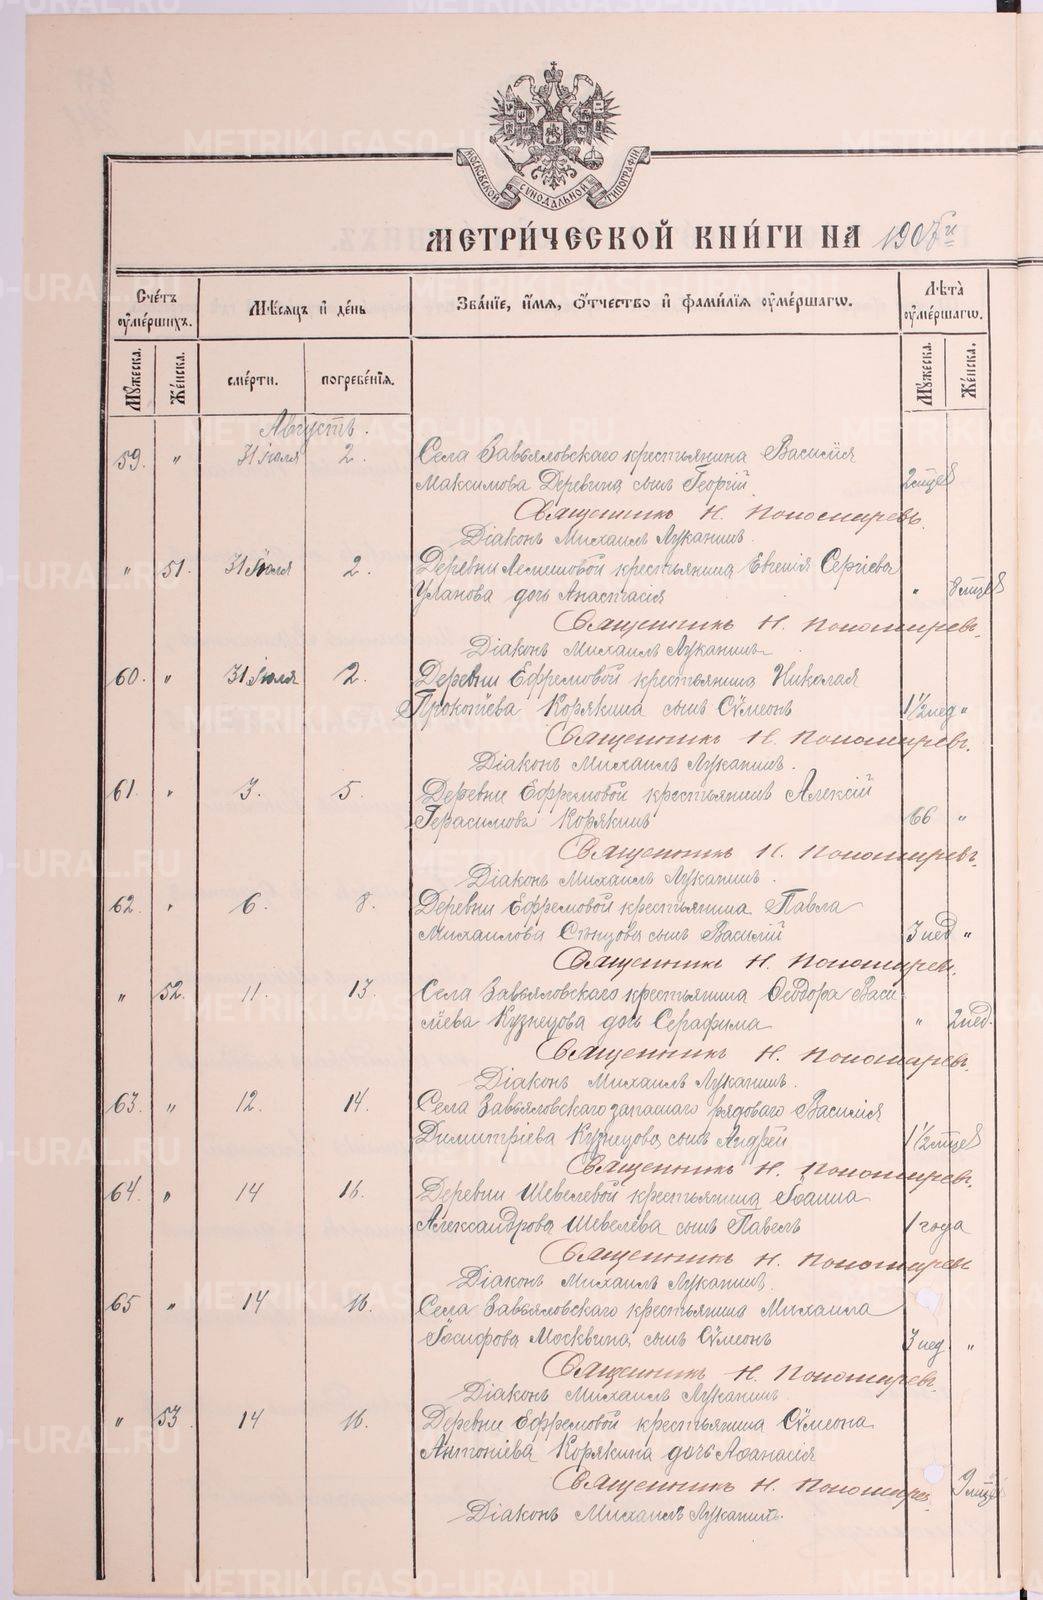 МОСКОВСКОЙ СѴНОДАЛЬНОЙ ТИПОГРАФІИ
МЕТРИ́ЧЕСКОЙ КНИ́ГИ НА 1907 г.
Сче́тъ ᲂу҆ме́ршихъ.
Мѣ́сяцъ и҆ де́нь
Зва́нїе, и҆́мѧ, ѻ҆́тчество и҆ фами́лїѧ ᲂу҆ме́ршагѡ.
Лѣ́та ᲂу҆ме́ршагѡ.
Мꙋ́жеска.
Же́нска.
сме́рти.
погребе́нїѧ.
Мꙋ́жеска.
Же́нска.
Августъ.
59. " 31 Іюля 2. Села Завьяловскаго крестьянина Василія
Максимова Деревина сынъ Георгій 2 мцев
Священникъ Н. Пономаревъ.
Діаконъ Михаилъ Луканинъ.
" 51. 31 Іюля 2. Деревни крестьянина Евгенія Сергіева
Уланова дочь Анастасія " 8 мцев
Священникъ Н. Пономаревъ.
Діаконъ Михаилъ Луканинъ.
60. " 31 Іюля 2. Деревни Ефремовой крестьянина Николая
Прокопіева Корякина сынъ Сѷмеонъ 1 1/2 нед "
Священникъ Н. Пономаревъ.
Діаконъ Михаилъ Луканинъ.
61. " 3. 5. Деревни Ефремовой крестьянинъ Алексій
Герасимовъ Корякинъ 66 "
Священникъ Н. Пономаревъ.
Діаконъ Михаилъ Луканинъ.
62. " 6. 8. Деревни Ефремовой крестьянина Павла
Михаилова сынъ Василій 3 нед "
Священникъ Н. Пономаревъ.
" 52. 11. 13. Села Завьяловскаго крестьянина Ѳеодора Васи-
лiева Кузнецова дочь Серафима " 2 нед.
Священникъ Н. Пономаревъ.
Діаконъ Михаилъ Луканинъ.
63. " 12. 14. Села Завьяловскаго запаснаго рядоваго Василія
Димитріева Кузнецова сынъ Андрей 1 1/2 мцев
Священникъ Н. Пономаревъ.
64. " 14 16. Деревни Шевелевой крестьянина Іоанна
Александрова Шевелева сынъ Павелъ 1 года
Священникъ Н. Пономаревъ
Діаконъ Михаилъ Луканинъ.
65 " 14 16. Села Завьяловскаго крестьянина Михаила
Іосифова Москвина сынъ Сѷмеонъ 3 нед. "
Священникъ Н. Пономаревъ.
Діаконъ Михаилъ Луканинъ.
" 53 14 16. Деревни Ефремовой крестьянина Сѷмеона
Антоніева Корякина дочь Аѳанасія
Священникъ Н. Пономарев. 9 мцев
Діаконъ Михаилъ Луканинъ.
METRIKI.GASO-URAL.RU